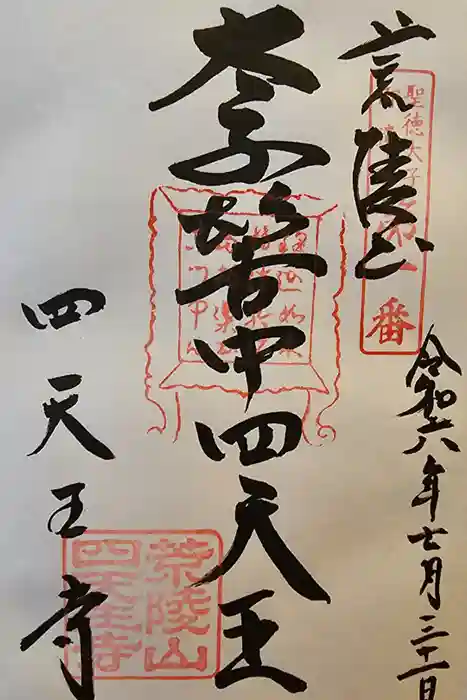 聖徳太子
第一番
荒陵山
令和六年七月三十一日
奉髻中四天王
四天王寺
荒陵山
四天王寺